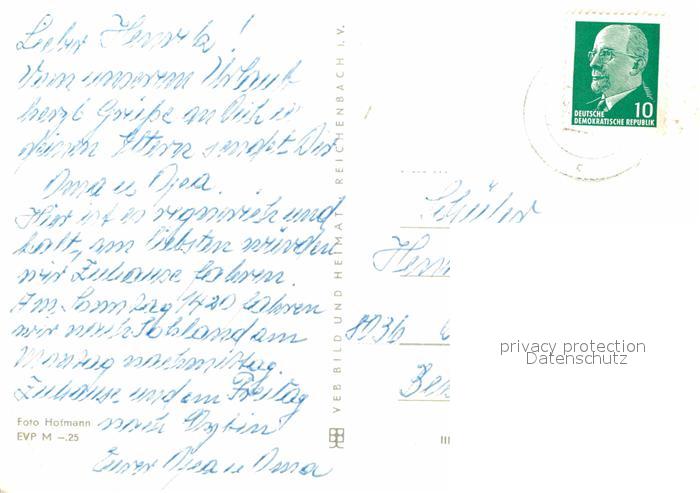 Lieber Henrik!
Von unserem Urlaub
herzl Grüße an Dich u
deinen Eltern sendet Dir
Oma u Opa.
Hier ist es regnerisch und
kalt, am liebsten würden
wir Zuhause fahren.
Am Samstag 1420 fahren
wir nach Sohland am
Montag nachmittag.
Zuhause und am Freitag
nach Oybin
Eurer Opa u Oma
Foto Hofmann
EVP M –.25
VEB BILD UND HEIMAT REICHENBACH I. V.
III
DEUTSCHE
DEMOKRATISCHE REPUBLIK
10
Schüler
Henr
8036
privacy protection
Datenschutz